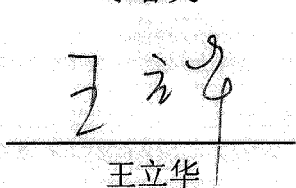 王立华
王立华